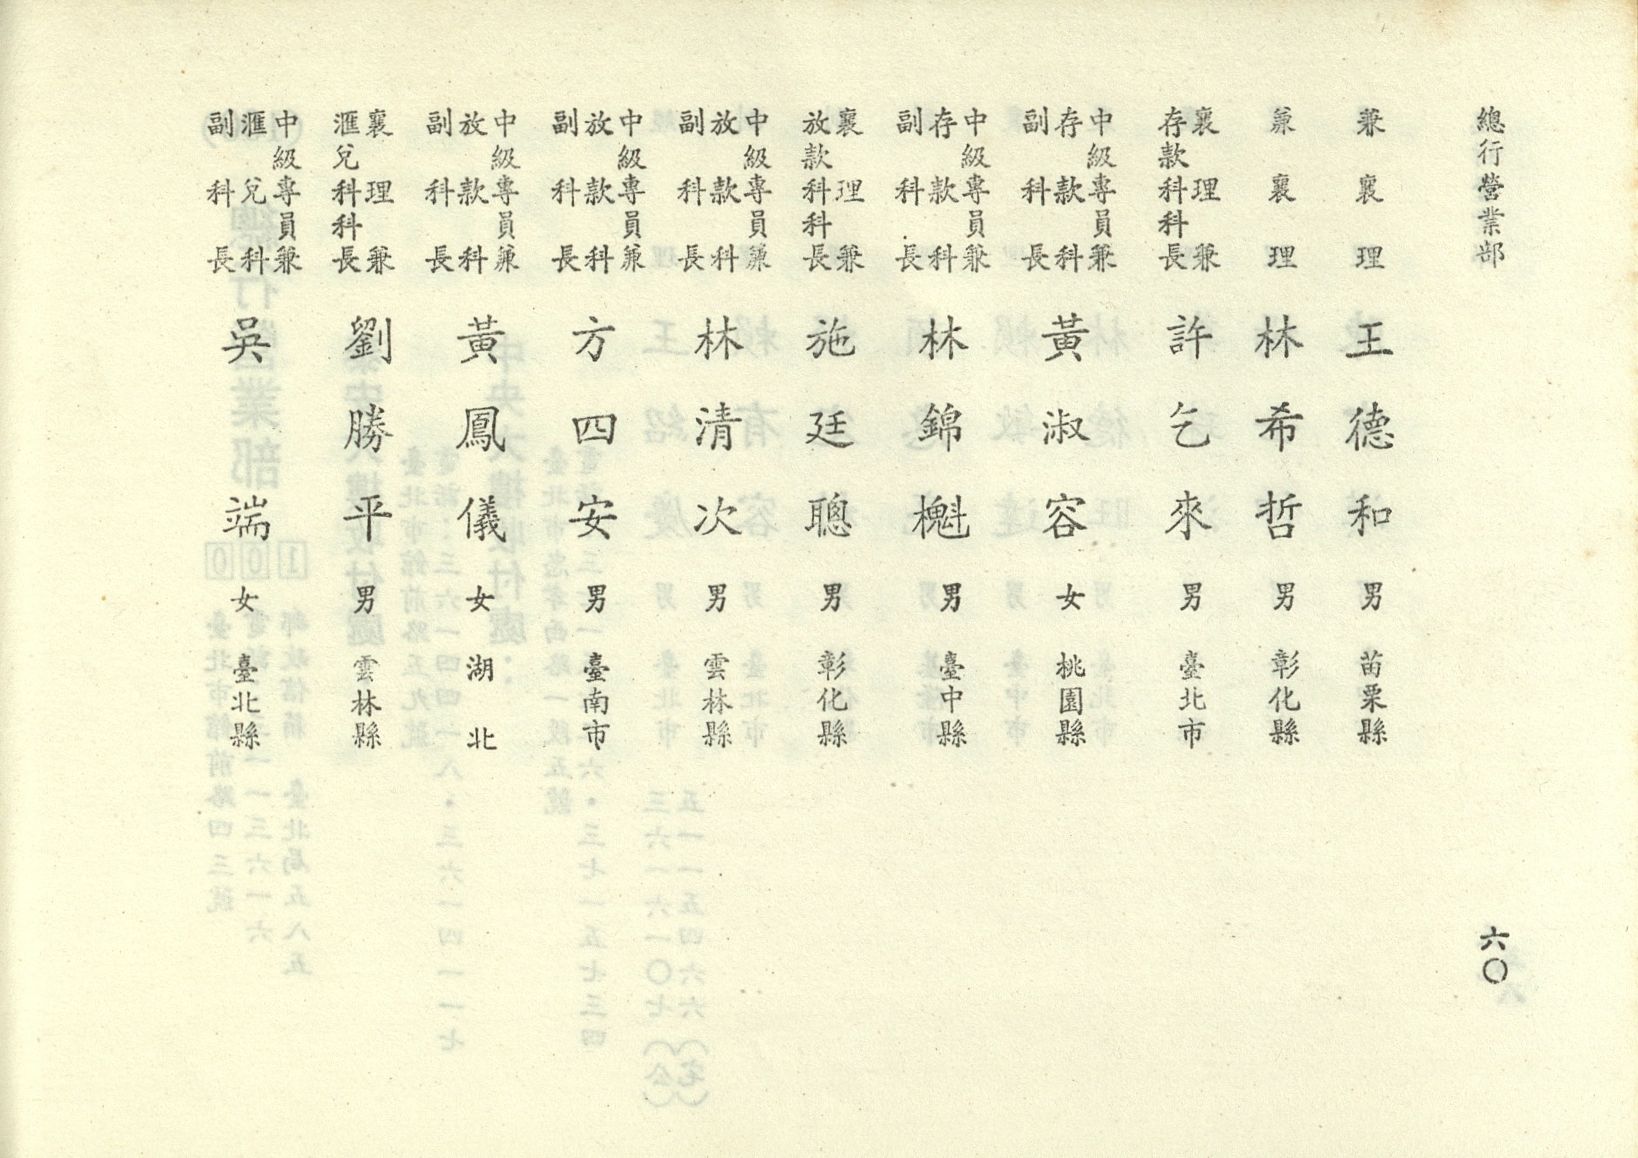 總行營業部
六〇
兼襄理 王德和 男 苗栗縣
兼襄理 林希哲 男 彰化縣
襄理兼
存款科科長 許乞來 男 臺北市
中級專員兼
存款科
副科長 黃淑容 女 桃園縣
中級專員兼
存款科
副科長 林錦槲 男 臺中縣
襄理兼
放款科科長 施廷聰 男 彰化縣
中級專員兼
放款科
副科長 林清次 男 雲林縣
中級專員兼
放款科
副科長 方四安 男 臺南市
中級專員兼
放款科
副科長 黃鳳儀 女 湖北
襄理兼
滙兌科科長 劉勝平 男 雲林縣
中級專員兼
滙兌科
副科長 吳端 女 臺北縣